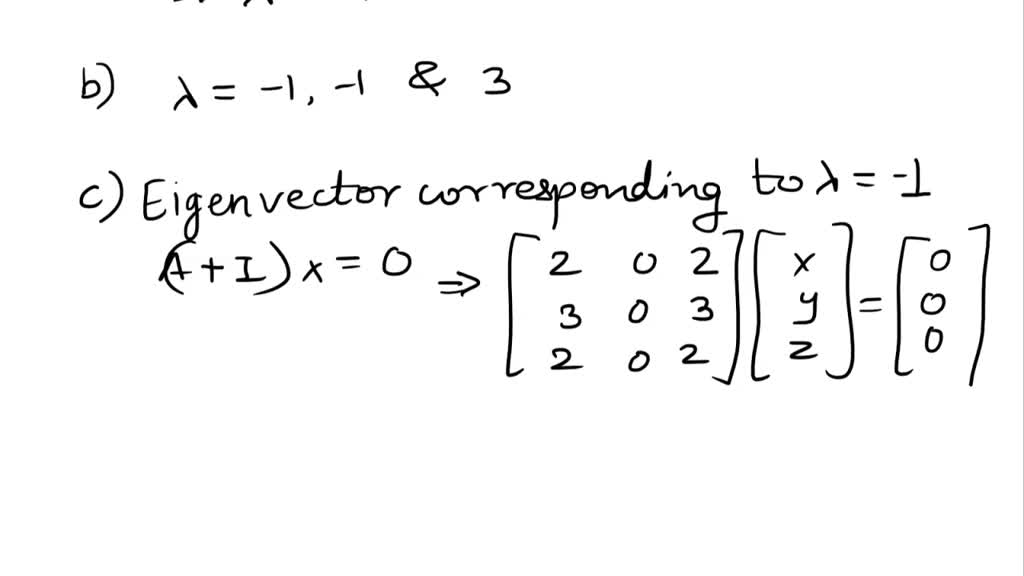 b) λ = -1, -1 & 3
c) Eigenvector corresponding to λ = -1
(A + I) x = 0 ⇒ [2 0 2; 3 0 3; 2 0 2] [x; y; z] = [0; 0; 0]